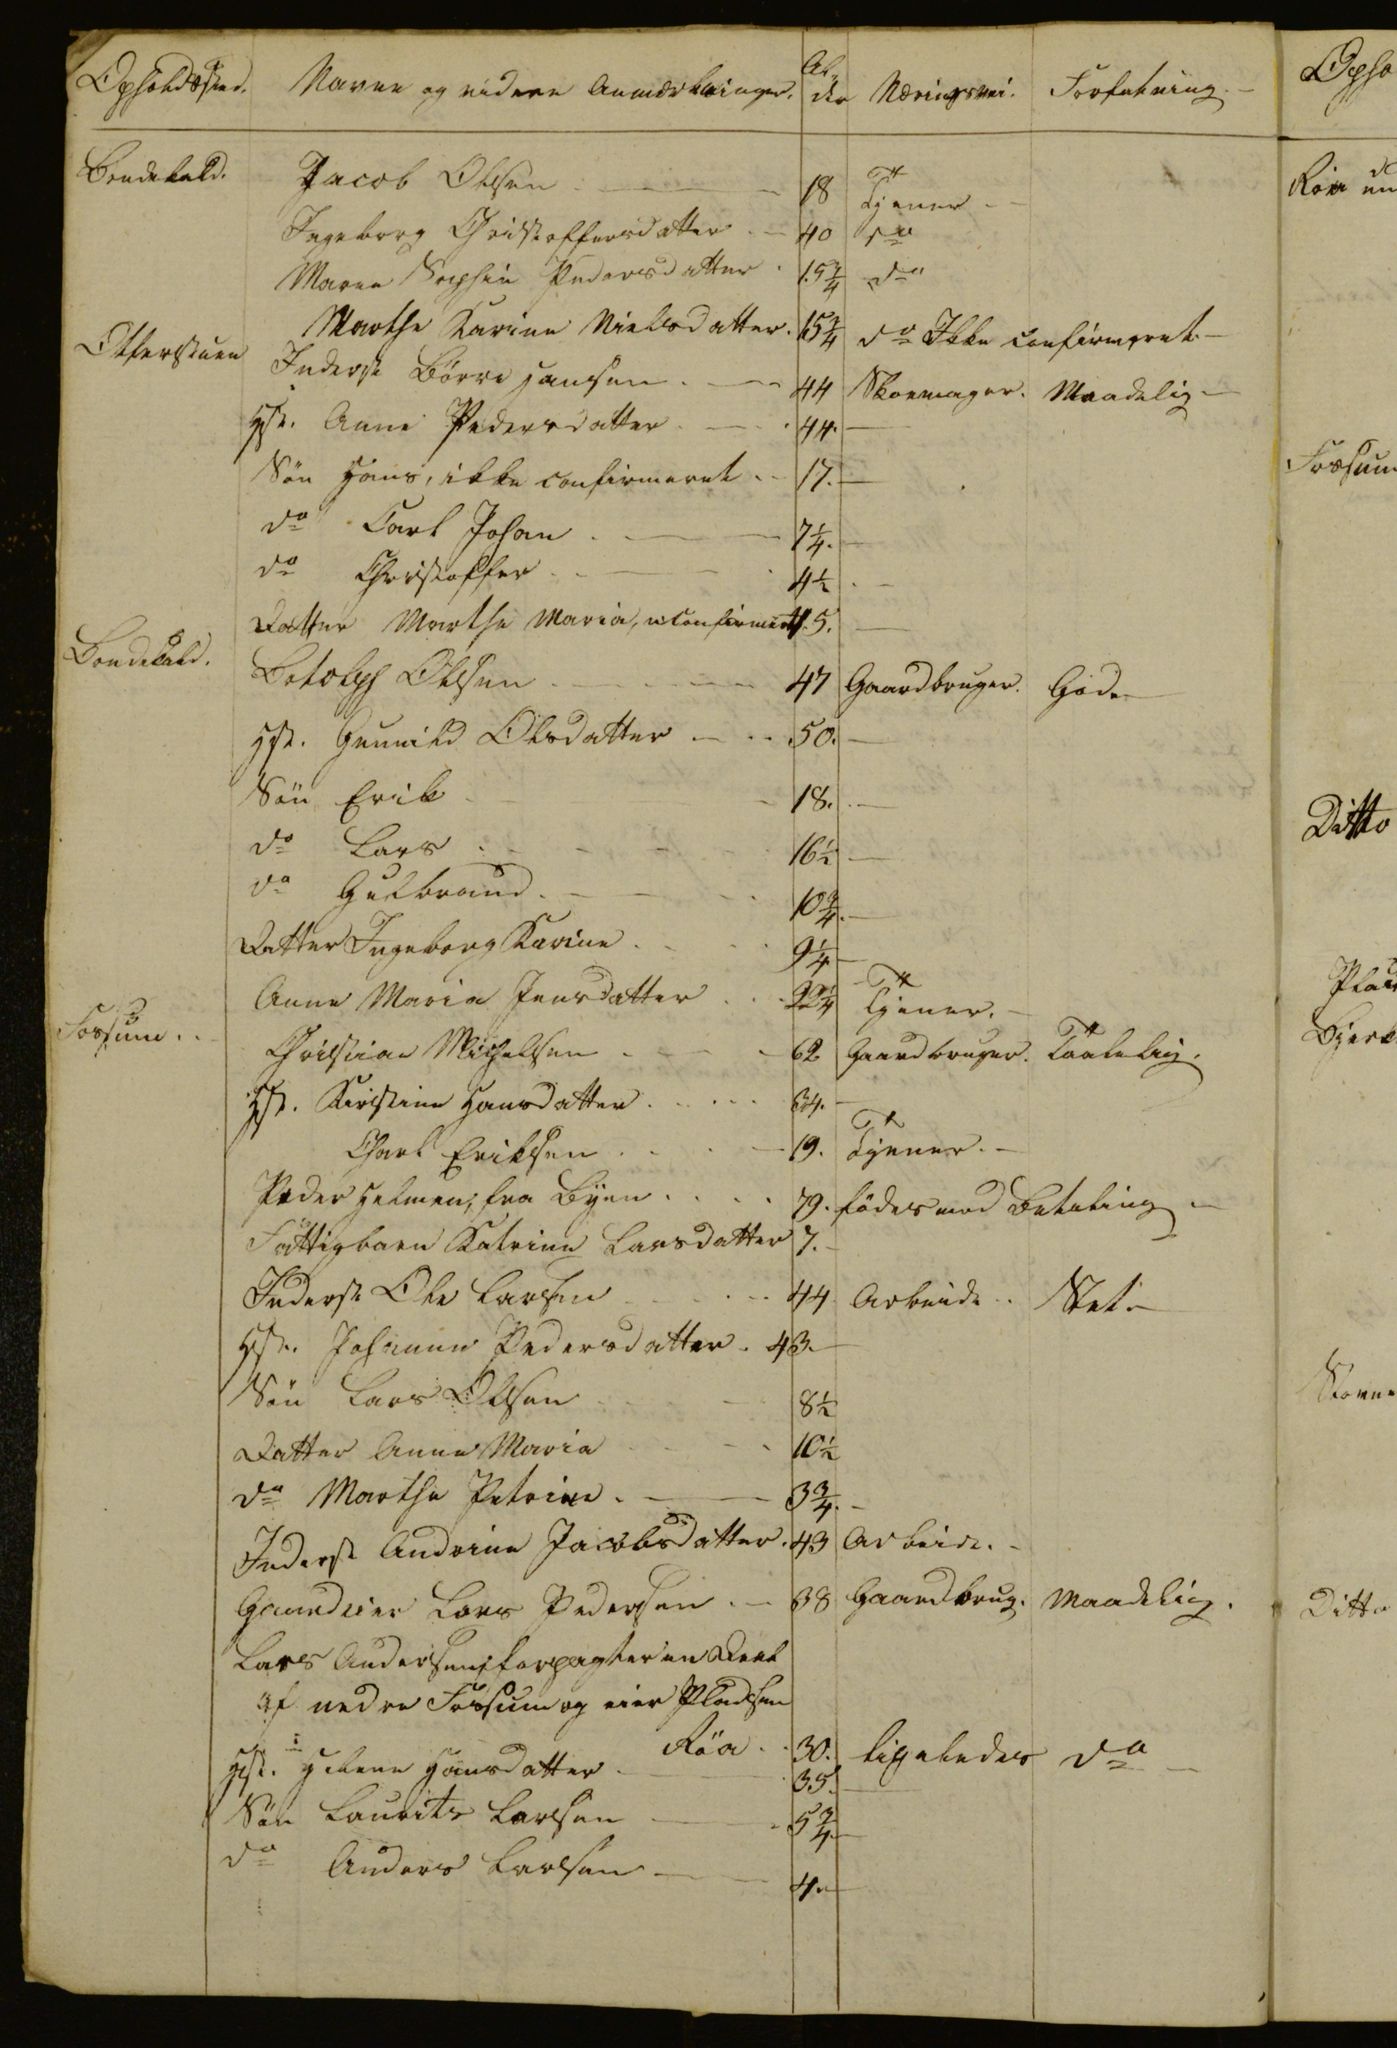 Opholdssted. Navne og videre Anmærkninger. Al-
der Næringsvei. Forfatning.
Bondekald. Jacob Olsen 18 Tjener
Ingeborg Christoffersdatter 40 do
Maren Sophie Pedersdatter 15 3/4 do
Marthe Karine Nielsdatter. 15 3/4 do Ikke confirmeret.
Olterstuen Inderst Börre Hansen 44 Skoemager. Maadelig
Hst. Anne Pedersdatter 44.
Sön Hans, ikke confirmeret 17.
do Carl Johan 7 1/4.
do Christoffer 4 1/2
Datter Marthe Maria, uconfirmert 15.
Bondekald. Botolph Olsen 47 Gaardbruger. Gode
Hst. Gunild Olsdatter 50.
Sön Erik 18.
do Lars 16 1/2
do Gulbrand 10 3/4.
Datter Ingeborg Karine 9 1/4
Anne Maria Jensdatter 22 1/4 Tjener.
Fossum. Christian Michelsen 62 Gaardbruger. Taalelig.
Hst. Kirstine Hansdatter 34.
Charl Eriksen 19. Tjener.
Peder Helmen, fra Byen 79. födes mod Betaling
Fattigbarn Katrine Larsdatter 7.
Inderst Ole Larsen 44 Arbeide Slet.
Hst. Johanne Pedersdatter. 43.
Sön Lars Olsen 8 1/2
Datter Anne Maria 10 1/2
do Marthe Petrine 3 3/4.
Inderst Andrine Jacobsdatter. 43 Arbeide.
Gaardeier Lars Pedersen 38 Gaardbrug. Maadelig.
Lars Andersen, forpagter en Deel
af nedre Fossum og eier Pladsen
Röa 30. ligeledes do
Hst. Helene Hansdatter 35.
Sön Laurits Larsen 5 3/4.
do Anders Larsen 4.
Opho
Röa
Fossum
Ditto
Plad
Bjerk
Stovne
Ditto